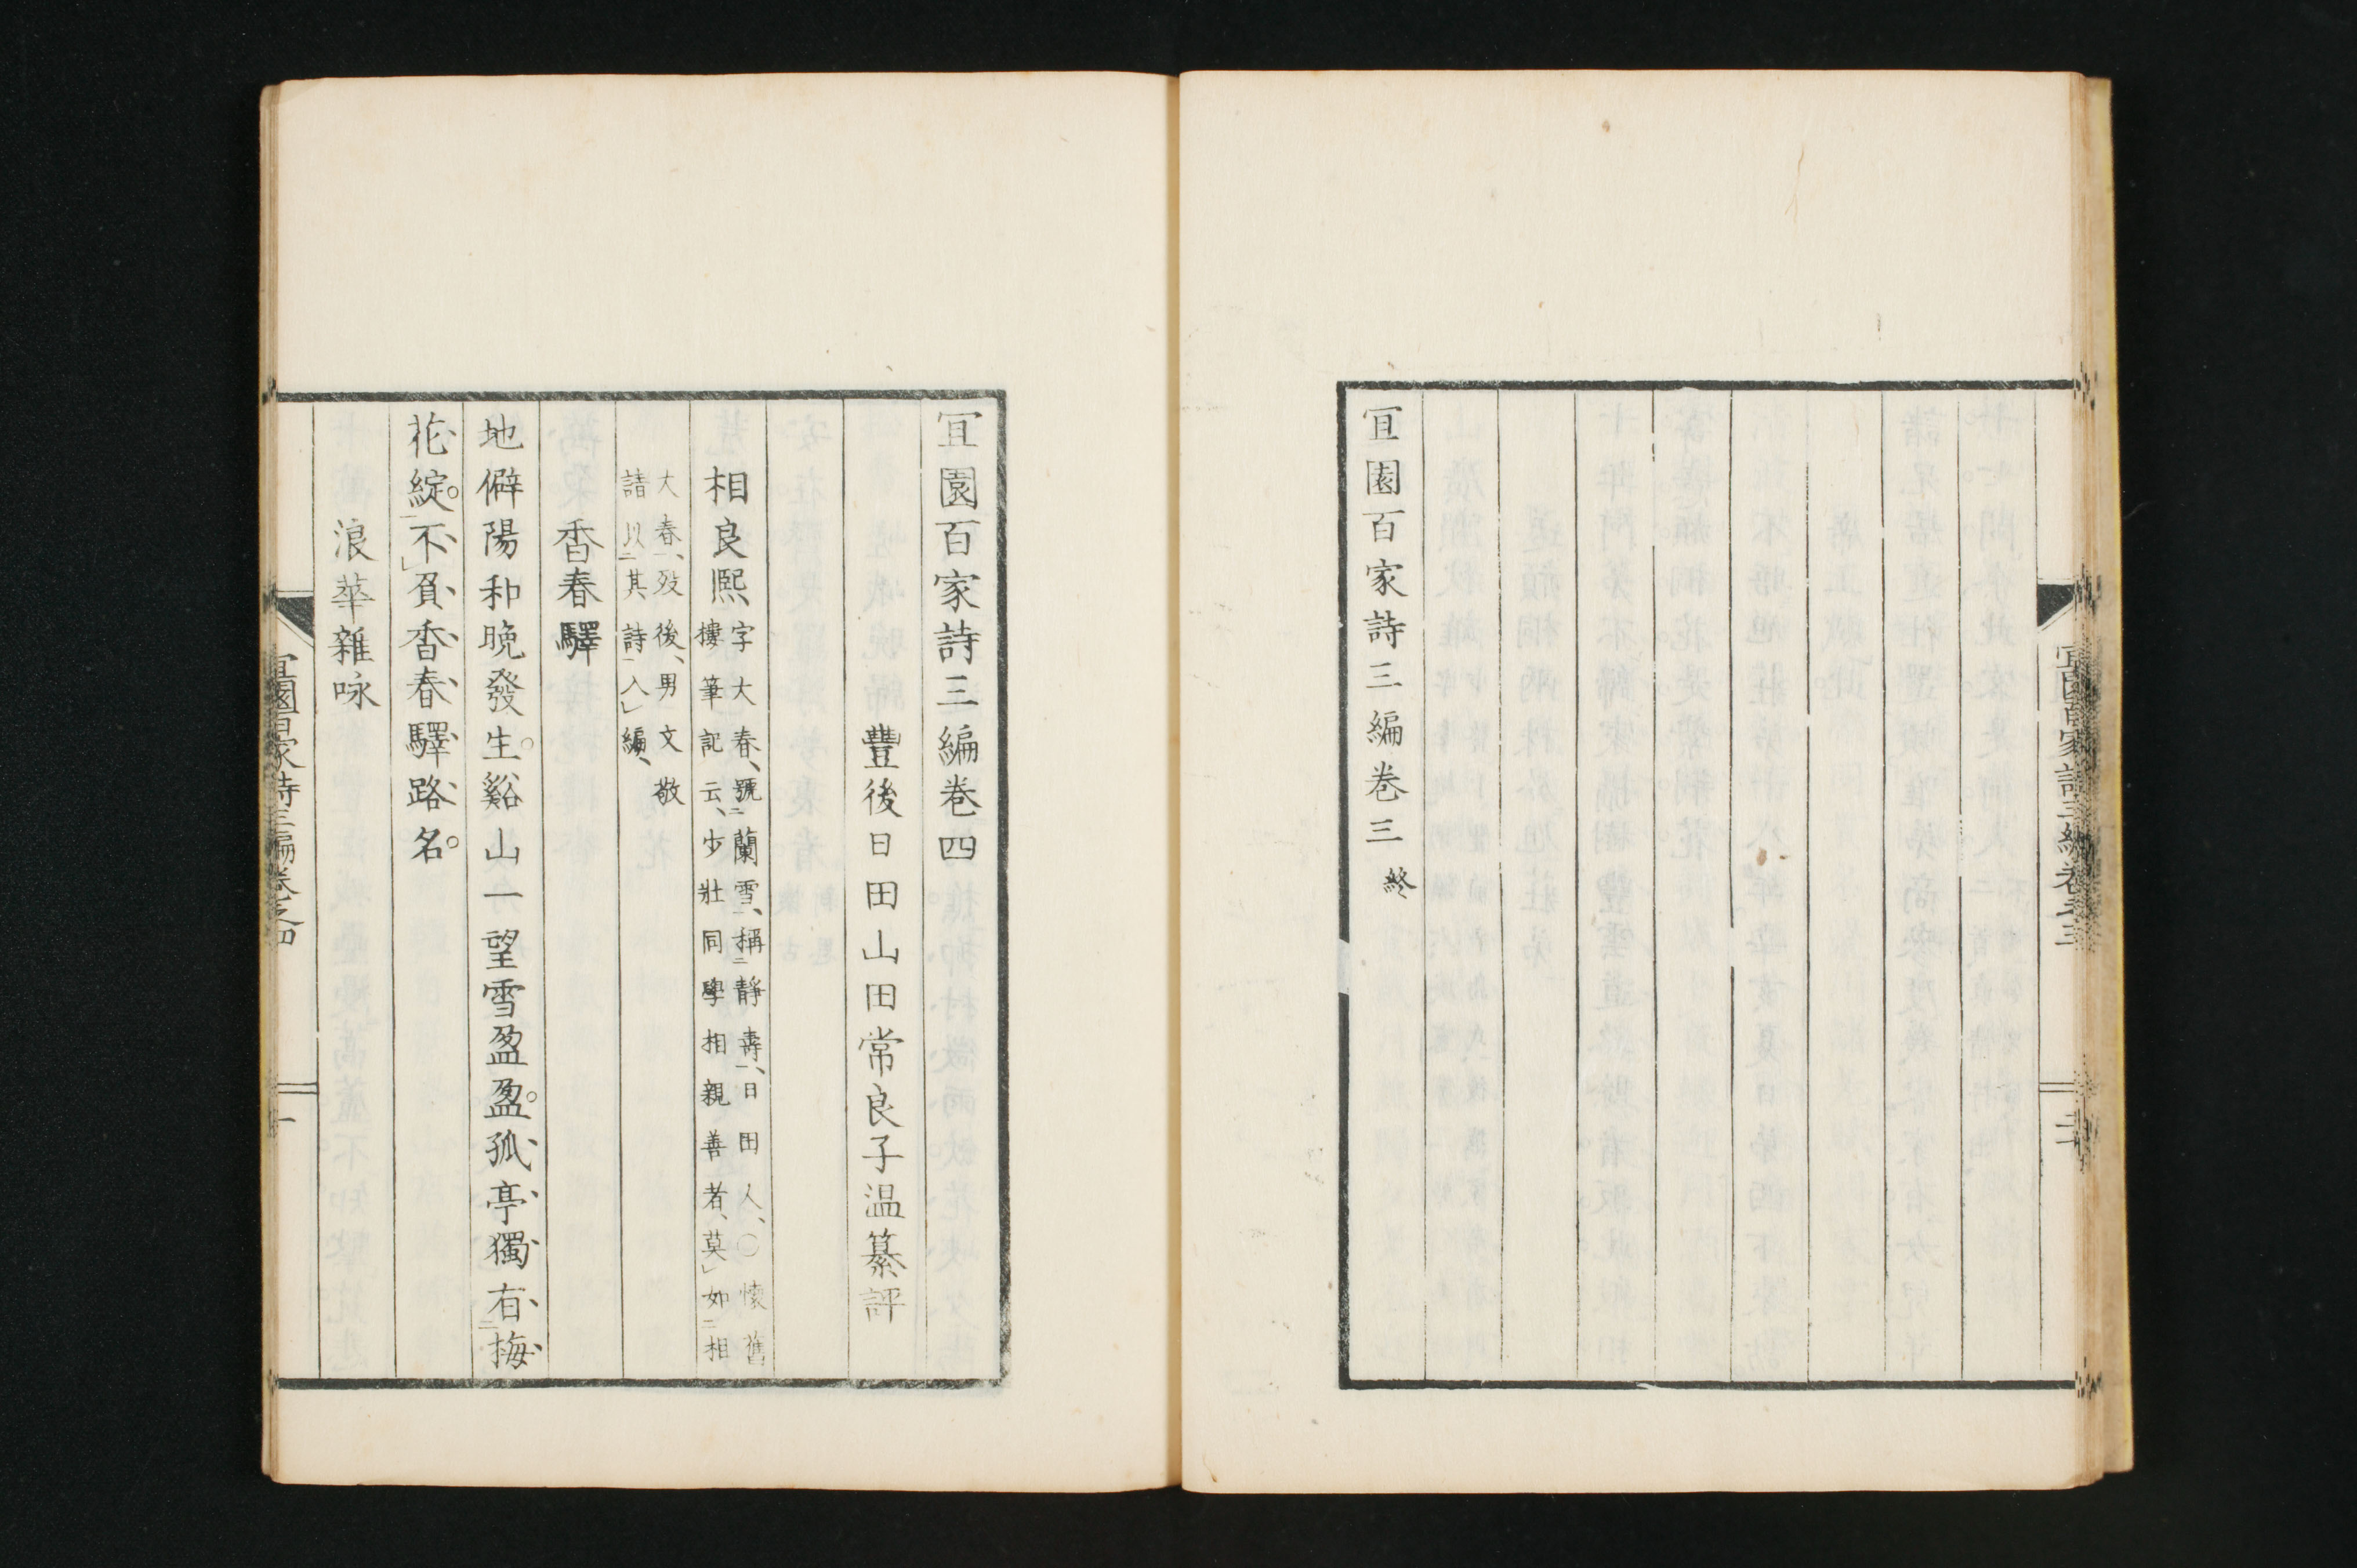 宜園百家詩三編卷三終
宜園百家詩三編卷四
豐後日田山田常良子温纂評
相良熈字大春、號二蘭雪一、稱二靜壽一、日田人、○懷舊
樓筆記云、少壯同學相親善者、莫」如二相
大春一、歿後、男文敬
請以二其詩一入」編、
香春驛
地僻陽和晩發生。谿山一望雪盈盈。孤亭獨有二梅
花綻一。不」負香春驛路名。
浪華雜咏
宜園百家詩三編卷之四
一